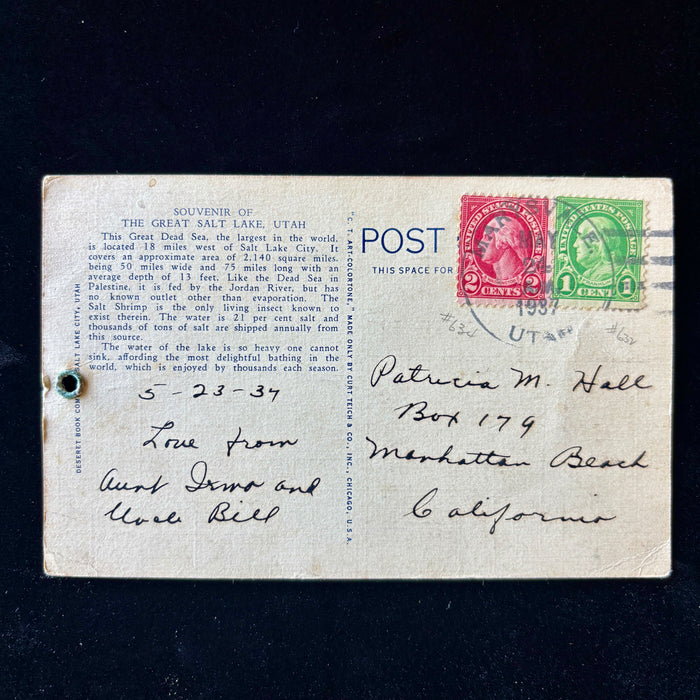 SOUVENIR OF
THE GREAT SALT LAKE, UTAH
This Great Dead Sea, the largest in the world,
is located 18 miles west of Salt Lake City. It
covers an approximate area of 2,140 square miles,
being 50 miles wide and 75 miles long with an
average depth of 13 feet. Like the Dead Sea in
Palestine, it is fed by the Jordan River, but has
no known outlet other than evaporation. The
Salt Shrimp is the only living insect known to
exist therein. The water is 21 per cent salt and
thousands of tons of salt are shipped annually from
this source.
The water of the lake is so heavy one cannot
sink, affording the most delightful bathing in the
world, which is enjoyed by thousands each season.
5-23-37
Love from
Aunt Irma and
Uncle Bill
DESERET BOOK COM SALT LAKE CITY, UTAH
"C. T. ART-COLORTONE," MADE ONLY BY CURT TEICH & CO., INC., CHICAGO, U.S.A.
POST
THIS SPACE FOR
UNITED STATES POSTAGE
2 CENTS 2
UNITED STATES POSTAGE
1 CENT 1
MAR VALE
MAY
1937
UTAH
#632
Patricia M. Hall
Box 179
Manhattan Beach
California